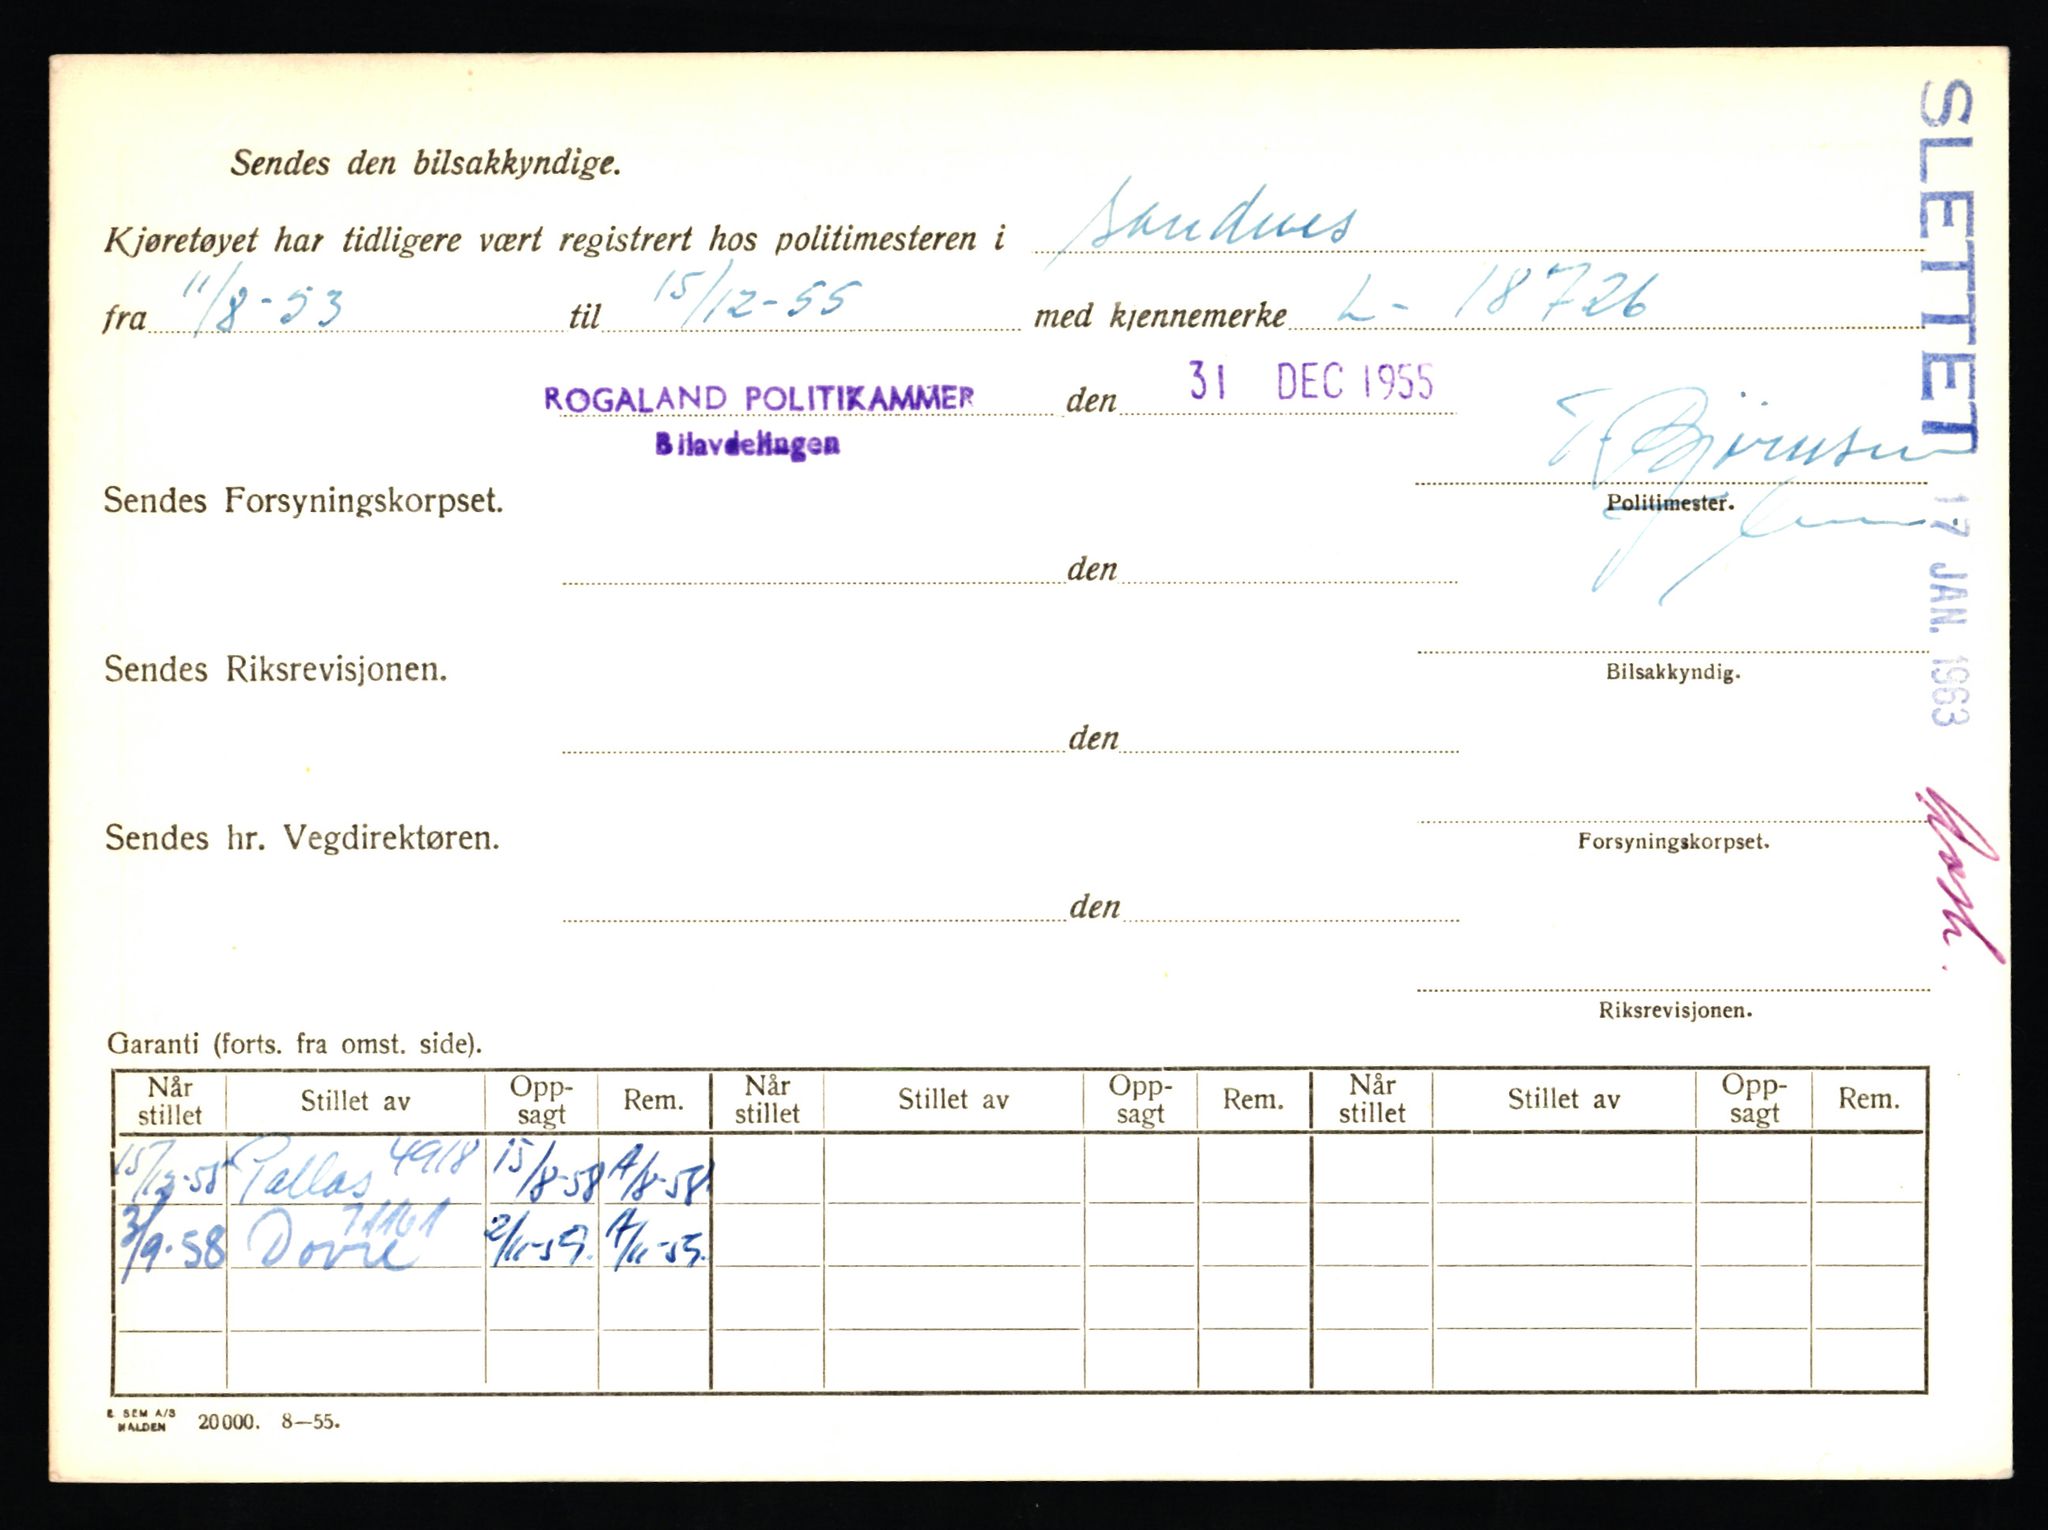 Sendes den bilsakkyndige.
Kjøretøyet har tidligere vært registrert hos politimesteren i Sandnes
fra 11/8-53 til 15/12-55 med kjennemerke L- 18726
ROGALAND POLITIKAMMER den 31 DEC 1955
Bilavdelingen
Sendes Forsyningskorpset.
Politimester.
den
Sendes Riksrevisjonen.
Bilsakkyndig.
den
Sendes hr. Vegdirektøren.
Forsyningskorpset.
den
Riksrevisjonen.
SLETTET 17 JAN. 1963
Garanti (forts. fra omst. side).
Når stillet Stillet av Opp-sagt Rem. Når stillet Stillet av Opp-sagt Rem. Når stillet Stillet av Opp-sagt Rem.
15/12-55 Pallas 4918 15/8-58 A/8-58
3/9-58 Dovre 71161 2/11-59. A/11-59.
E. SEM A/S
HALDEN 20000. 8—55.